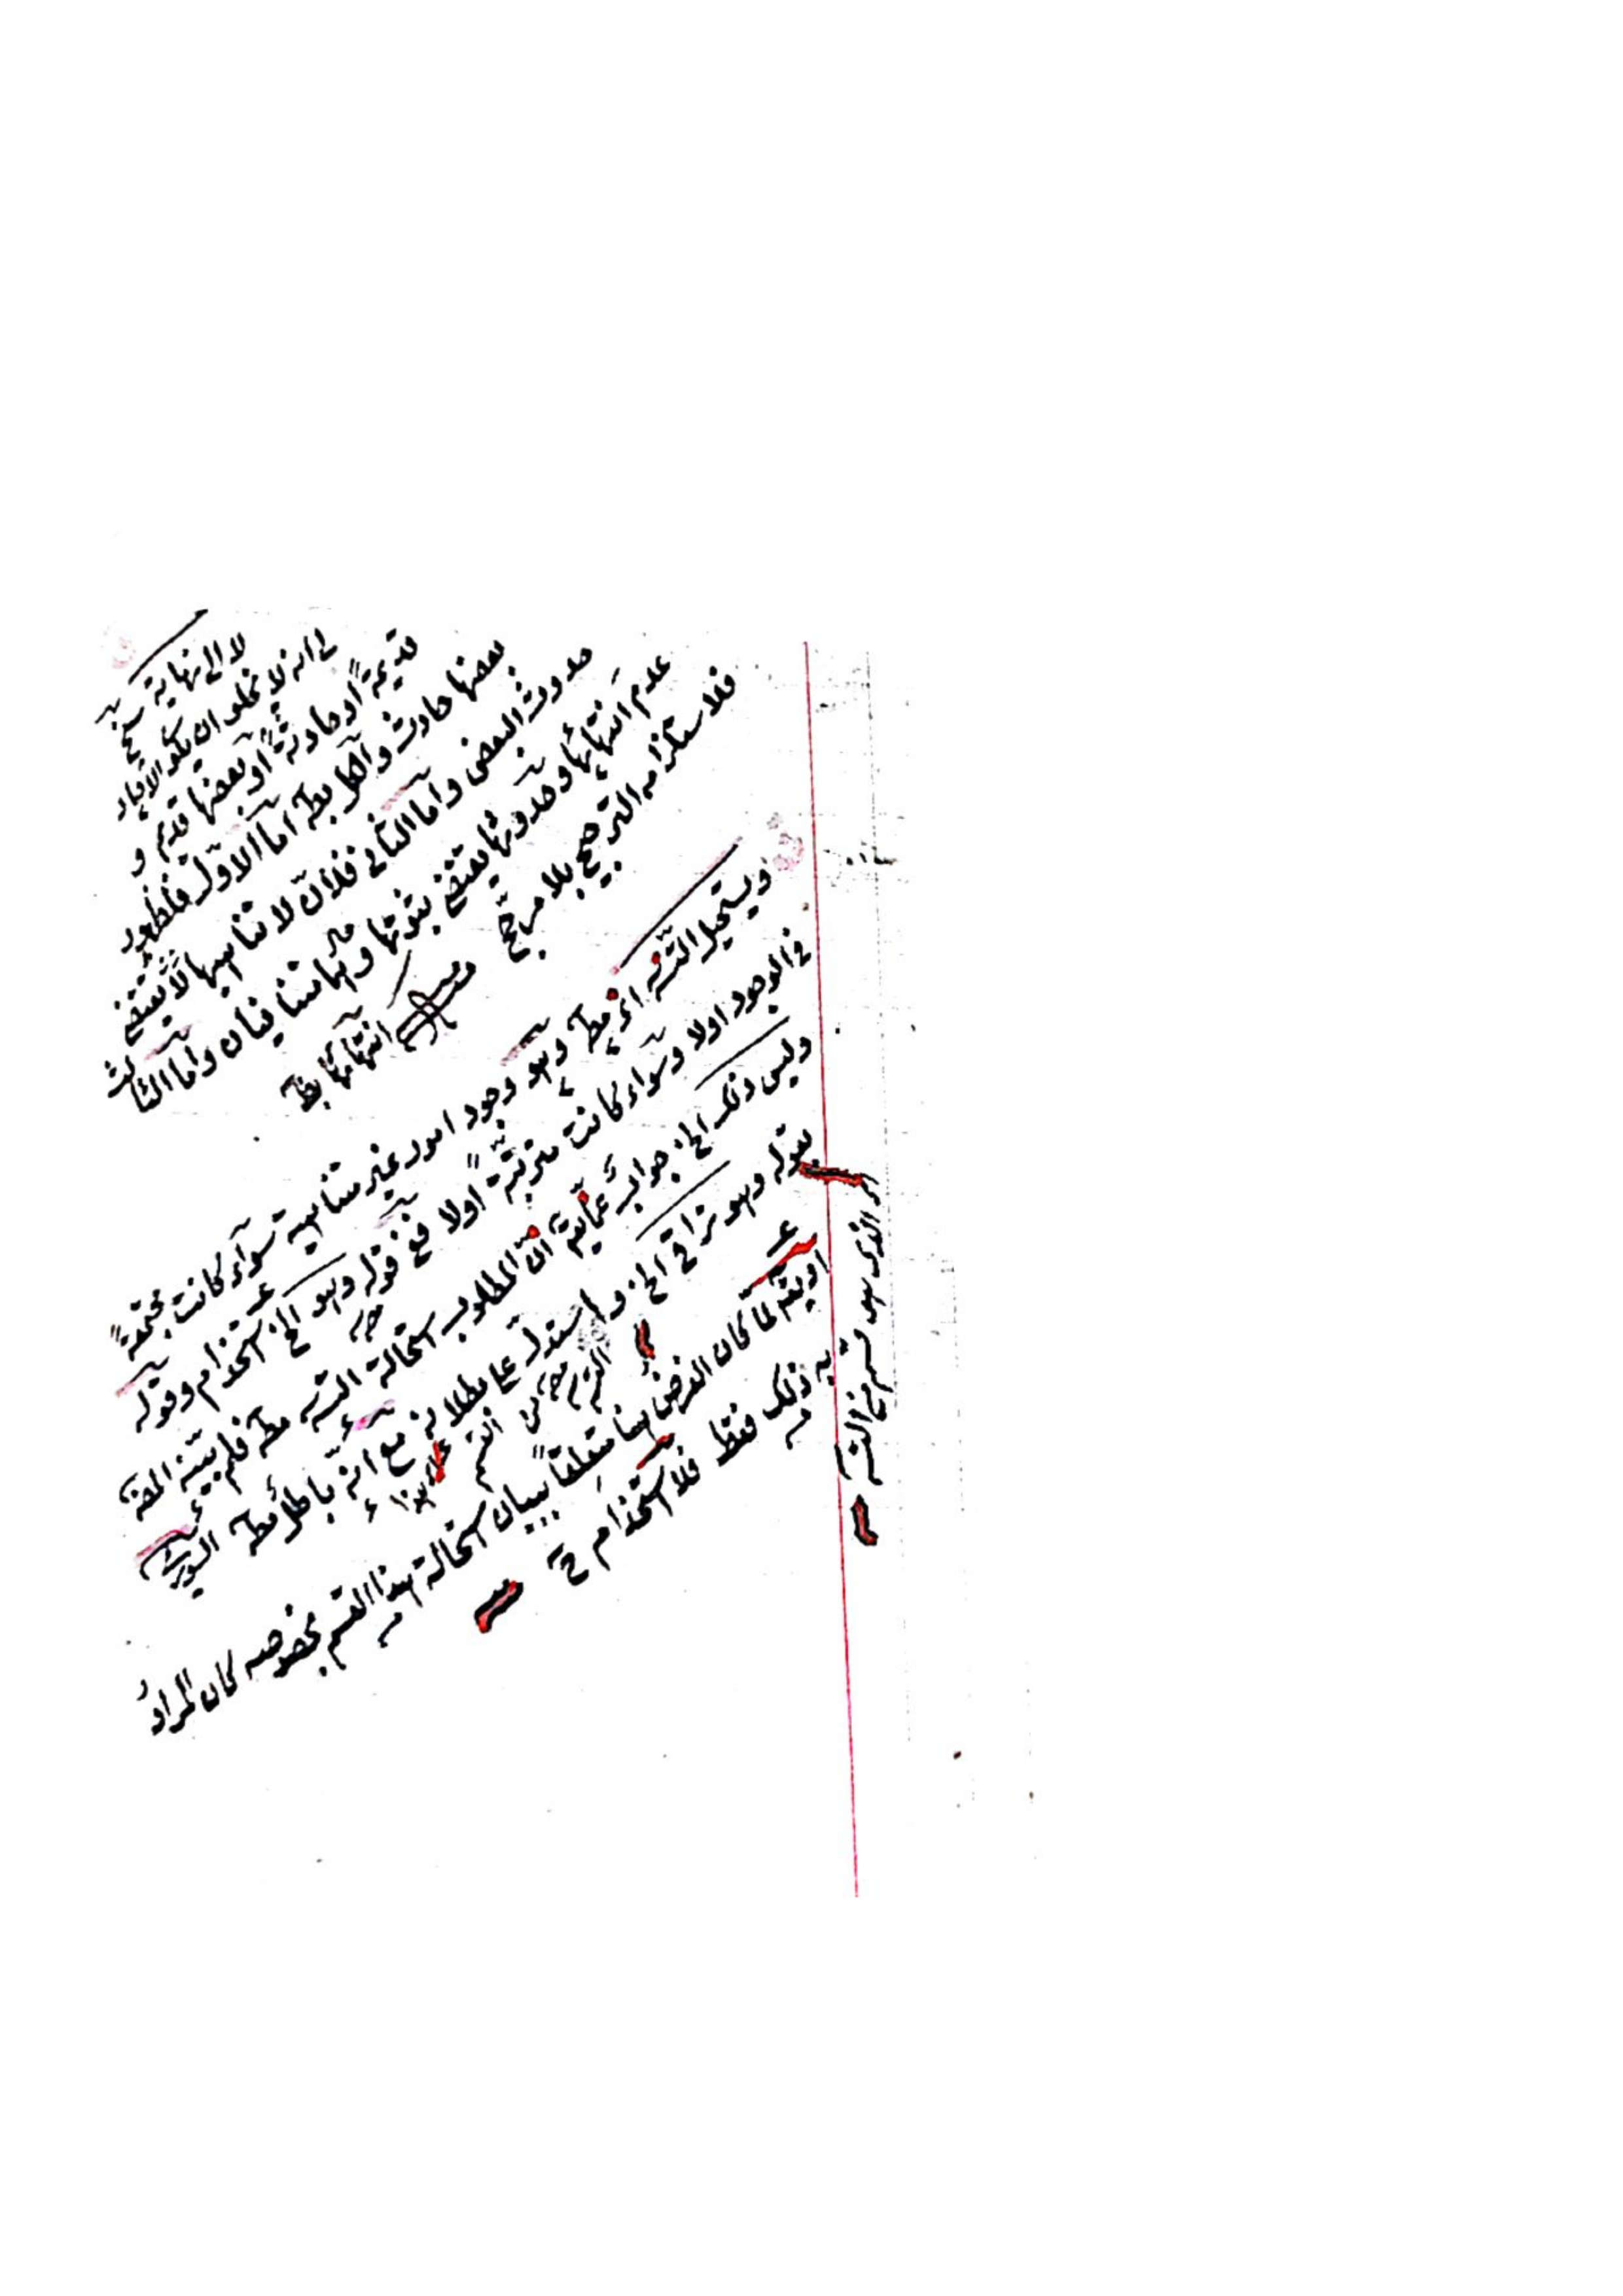 لا الى نهاية
لانه لا يخلو ان يكو الآحاد
قديمة أو حادثة أو بعضها قديم و
بعضها حادث والكل بط اما الاول فلظهور
حدوث البعض واما الثاني فلأن لا تناهيها لا يقتضى
عدم انتهائها وحدوثها يقتضى بثبوتها وهما متنافيان واما الثالث
فلاستلزامه الترجيح بلا مرجح انتهائها بط
ويستحيل التس اى مط وهو وجود امور غير متناهية سواء كانت مجتمعة
فى الوجود اولا وسواء كانت مترتبة اولا ففى قوله وهو الخ استخدام وقوله
وليس ذلك الخ جواب عما يق ان المطلوب استحالة التس مط فلم يقيد المص
بقوله وهو تراقى الخ واستدل على بطلانه مع انه باطل مط
او يق لما كان الغرض هنا متعلقا ببيان استحالة هذا القسم بخصوصه كان المراد
به ذلك فقط فلا استخدام ح
الذى هو قسم من التس